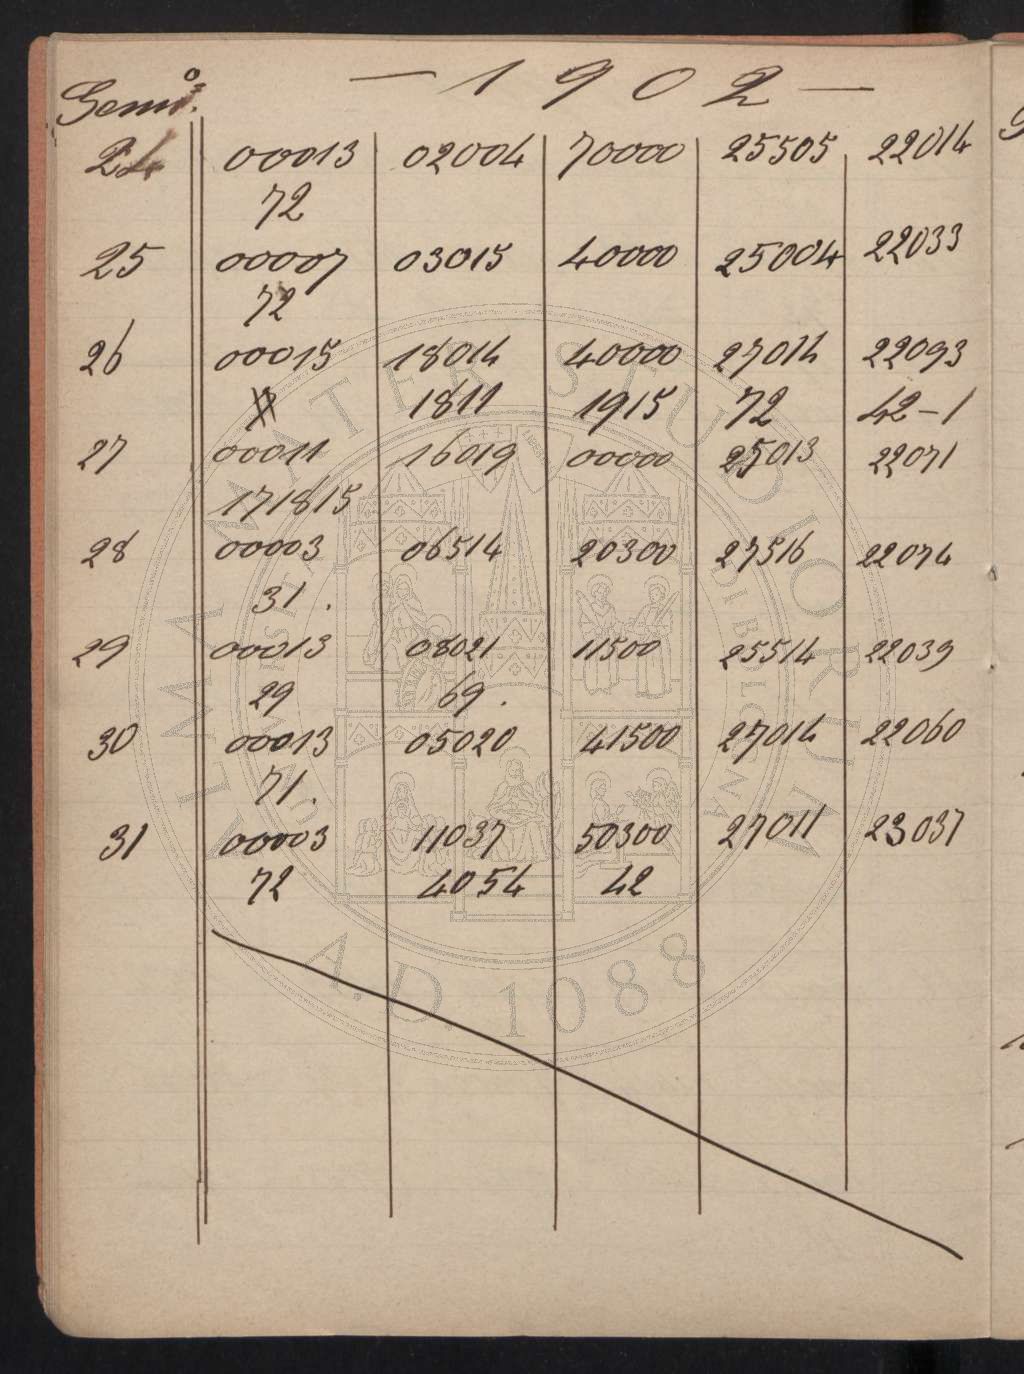 — 1902 —
Genn.º
24 00013 02004 70000 25505 22014
72
25 00007 03015 40000 25004 22033
72
26 00015 18014 40000 27014 22093
1811 1915 72 42-1
27 00011 16019 00000 25013 22071
171815
28 00003 06514 20300 27516 22074
31.
29 00013 08021 11500 25514 22039
29 69.
30 00013 05020 41500 27014 22060
71.
31 00003 11037 50300 27011 23037
72 4054 42
ALMA MATER STUDIORUM
A.D. 1088